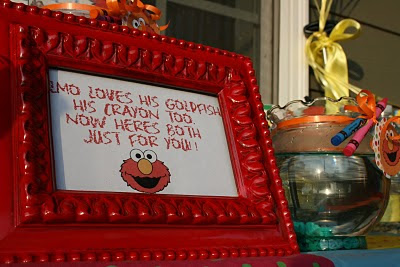 LMO LOVES HIS GOLDFISH
HIS CRAYON TOO
NOW HERES BOTH
JUST FOR YOU!